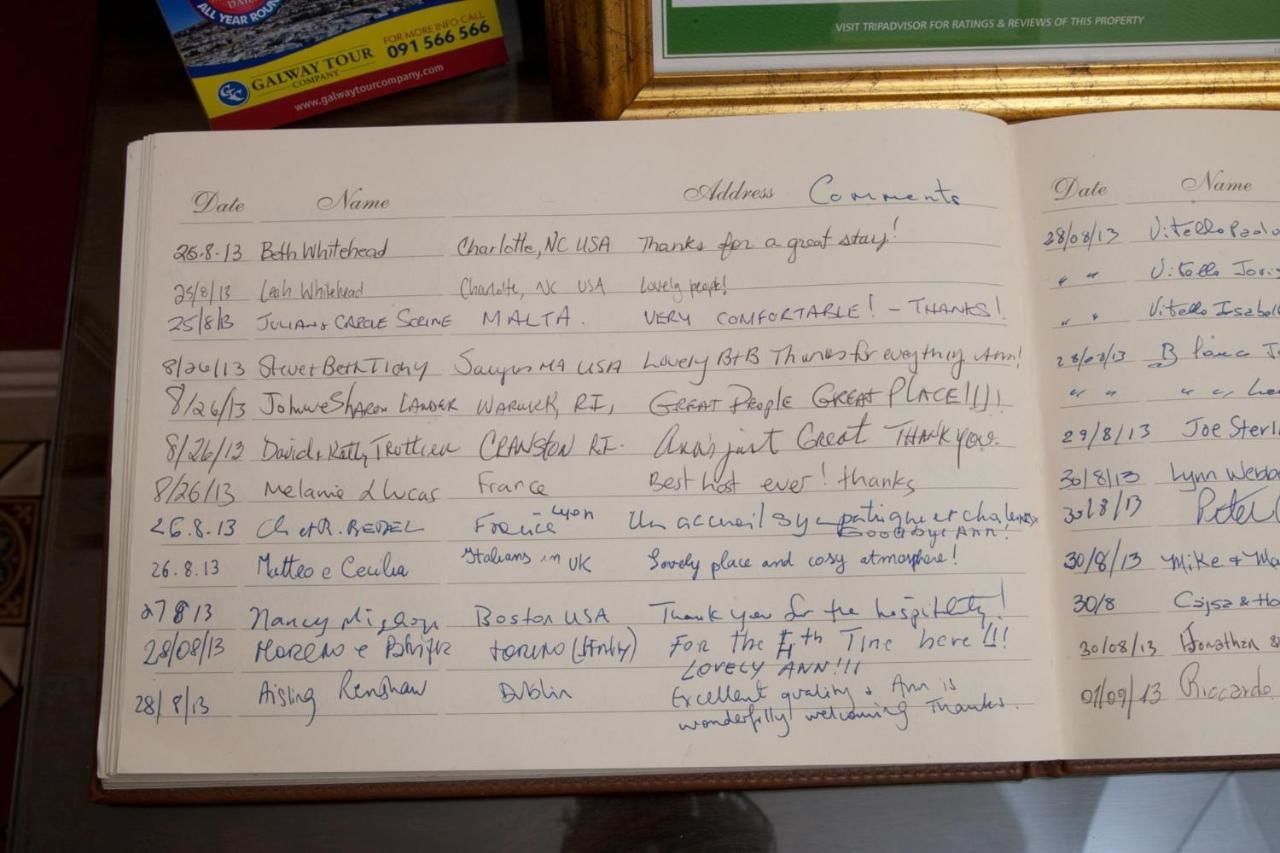 DAILY
ALL YEAR ROUND
FOR MORE INFO CALL
091 566 566
GTC GALWAY TOUR
COMPANY
www.galwaytourcompany.com
VISIT TRIPADVISOR FOR RATINGS & REVIEWS OF THIS PROPERTY
Date Name Address Comments
25.8.13 Beth Whitehead Charlotte, NC USA Thanks for a great stay!
25/8/13 Leah Whitehead Charlotte, NC USA Lovely people!
25/8/13 JULIAN & CAROLE MALTA. VERY COMFORTABLE! - THANKS!
8/26/13 Steve & Beth Tichy Saugus MA USA Lovely B+B Thanks for everything Ann!
8/26/13 John & Sharon LANDER WARWICK, RI, GREAT PEOPLE GREAT PLACE!!!!
8/26/13 David & Kathy CRANSTON RI. Ann's just Great THANK you.
8/26/13 Melanie & Lucas France Best host ever! thanks
26.8.13 Ch et R. France - Lyon Un accueil sympatique et
Goodbye Ann!
26.8.13 Matteo e Cecilia Italians in UK Lovely place and cosy atmosphere!
27 8 13 Nancy Boston USA Thank you for the hospitality!
28/08/13 MORENO e TORINO (Italy) FOR THE 4th TIME here!!!
LOVELY ANN!!!
28/8/13 Aisling Renshaw Dublin Excellent quality & Ann is
wonderfully welcoming Thanks.
Date Name
28/08/13 Vitello Paolo
" " Vitello
" " Vitello Isabell
28/08/13 B
" " " "
29/8/13 Joe Sterl
30/8/13 Lynn Webb
30/8/13 Peter
30/8/13 Mike & Ma
30/8 Cajsa & Ha
30/08/13 Jonathan &
01/09/13 Riccardo